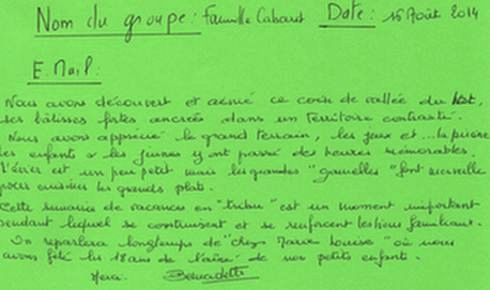 Nom du groupe : Famille Cabaret Date : 15 Août 2014
E.Mail :
Nous avons découvert et aimé ce coin de vallée du Lot,
ses bâtisses fortes ancrées dans un territoire contrasté.
Nous avons apprécié le grand terrain, les jeux et ... la piscine
les enfants & les jeunes y ont passé des heures mémorables.
L'évier est un peu petit mais les grandes "gamelles" font merveille
pour cuisiner les grands plats.
Cette semaine de vacances en "tribu" est un moment important
pendant lequel se construisent et se renforcent les liens familiaux.
On reparlera longtemps de "chez Marie Louise" où nous
avons fêté les 18 ans de l'aîné de nos petits enfants.
Merci. Bernadette